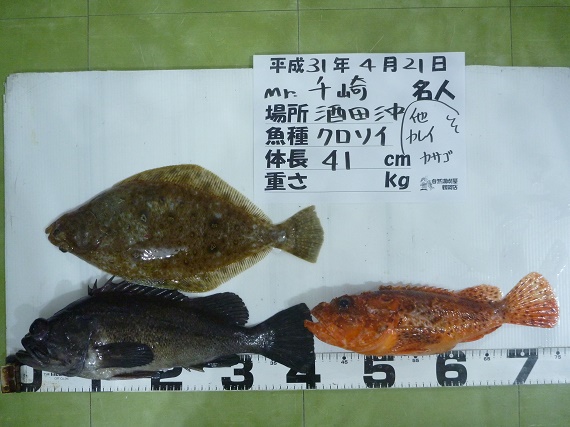 平成31年4月21日
Mr. 千崎 名人
場所 酒田沖
魚種 クロソイ
他
カレイ
カサゴ
体長 41 cm
重さ kg
0 1 2 3 4 5 6 7